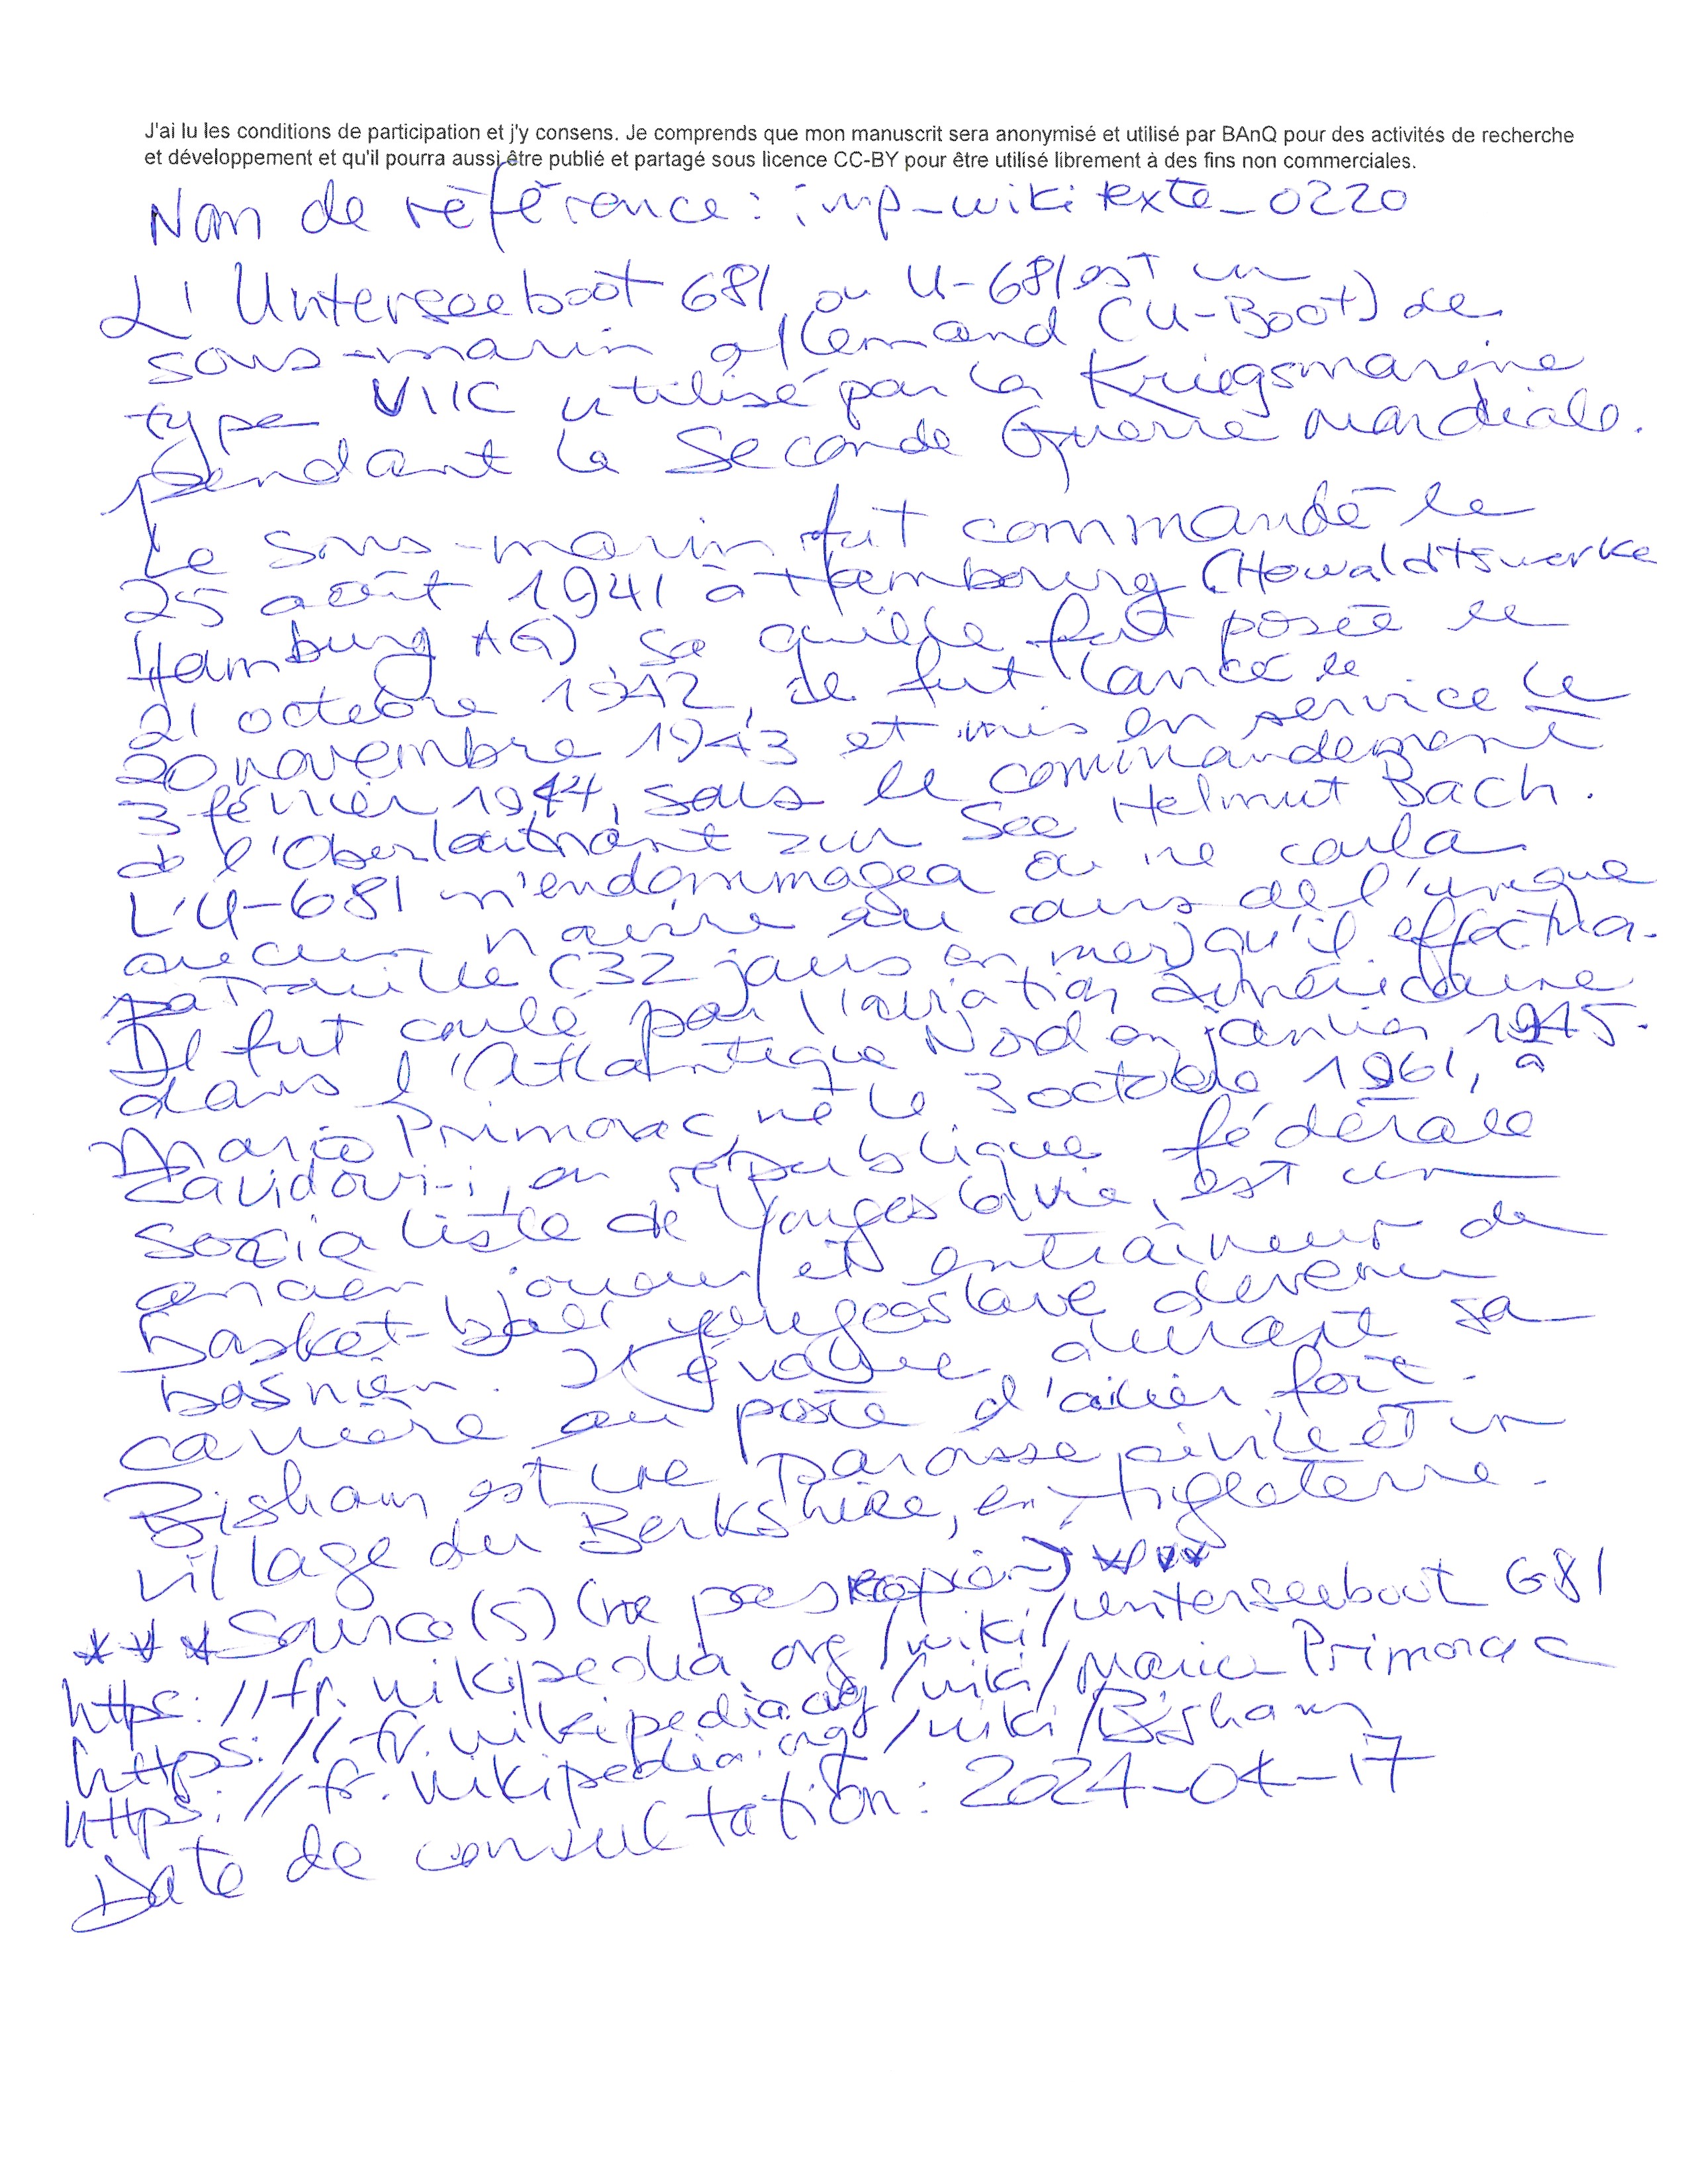 J'ai lu les conditions de participation et j'y consens. Je comprends que mon manuscrit sera anonymisé et utilisé par BAnQ pour des activités de recherche
et développement et qu'il pourra aussi être publié et partagé sous licence CC-BY pour être utilisé librement à des fins non commerciales.
Nom de référence : imp_wikitexte_0220
L'Unterseeboot 681 ou U-681 est un
sous-marin allemand (U-Boot) de
type VIIC utilisé par la Kriegsmarine
pendant la Seconde Guerre mondiale.
Le sous-marin fut commandé le
25 août 1941 à Hambourg (Howaldtswerke
Hamburg AG), sa quille fut posée le
21 octobre 1942, il fut lancé le
20 novembre 1943 et mis en service le
3 février 1944, sous le commandement
de l'Oberleutnant zur See Helmut Bach.
L'U-681 n'endommagea ou ne coula
aucun navire au cours de l'unique
patrouille (32 jours en mer) qu'il effectua.
Il fut coulé par l'aviation américaine
dans l'Atlantique Nord en janvier 1945.
Mario Primorac, né le 3 octobre 1961, à
Zavidovi-i, en république fédérale
socialiste de Yougoslavie, est un
ancien joueur et entraîneur de
basket-ball yougoslave devenu
bosnien. Il évolue durant sa
carrière au poste d'ailier fort.
Bisham est une paroisse civile et un
village du Berkshire, en Angleterre.
***Source(s) (ne pas recopier)***
https://fr.wikipedia.org/wiki/Unterseeboot 681
https://fr.wikipedia.org/wiki/Mario Primorac
https://fr.wikipedia.org/wiki/Bisham
Date de consultation : 2024-04-17